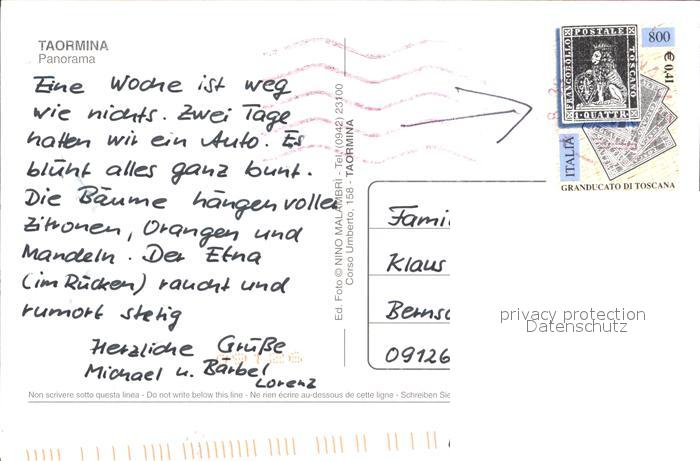 TAORMINA
Panorama
Eine Woche ist weg
wie nichts. Zwei Tage
hatten wir ein Auto. Es
blüht alles ganz bunt.
Die Bäume hängen voller
Zitronen, Orangen und
Mandeln. Der Etna
(im Rücken) raucht und
rumort stetig
Herzliche Grüße
Michael u. Bärbel
Lorenz
Non scrivere sotto questa linea - Do not write below this line - Ne rien écrire au-dessous de cette ligne - Schreiben Sie
Ed. Foto © NINO MALAMBRÌ - Tel. (0942) 23100
Corso Umberto, 158 - TAORMINA
FRANCOBOLLO
POSTALE
TOSCANO
1 QUATTR.
800
€ 0,41
ITALIA
GRANDUCATO DI TOSCANA
Famil
Klaus
Bernsd
09126
privacy protection
Datenschutz